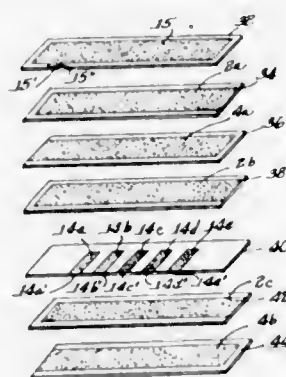 15 32
15' 15"
8a 34
4a 36
2b 38
14a 14b 14c 14d 14e
40
14a' 14b' 14c' 14d' 14e'
2c 42
4b 44